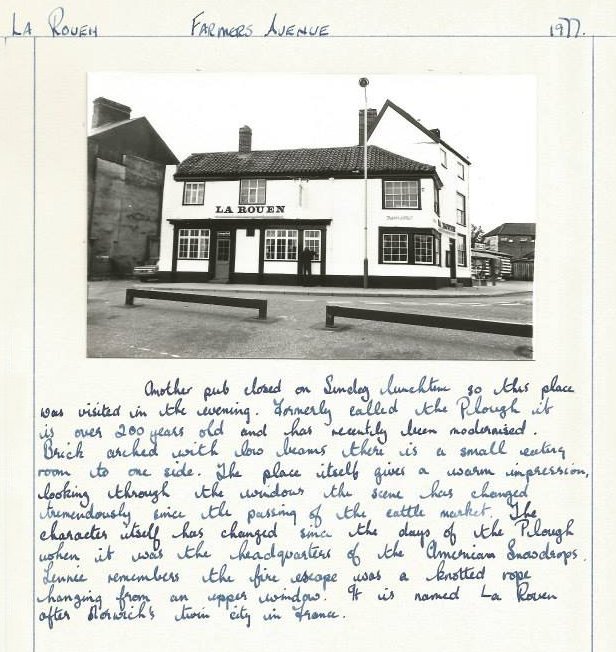 LA ROUEN FARMERS AVENUE 1977.
LA ROUEN
Another pub closed on Sunday lunchtime so this place
was visited in the evening. Formerly called the Plough it
is over 200 years old and has recently been modernised.
Brick arched with low beams there is a small eating
room to one side. The place itself gives a warm impression,
looking through the windows the scene has changed
tremendously since the passing of the cattle market. The
character itself has changed since the days of the Plough
when it was the headquarters of the American Snowdrops.
Lennie remembers the fire escape was a knotted rope
hanging from an upper window. It is named La Rouen
after Norwich's twin city in France.